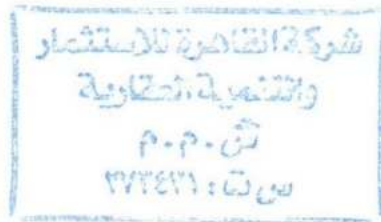 شركة القاهرة للاستثمار
والتنمية العقارية
ش.م.م
س.ت: ٣٧٣٤٣١